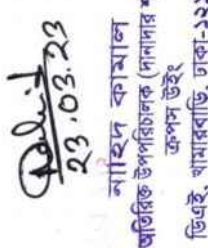 23.03.23
নাহিদ কামাল
অতিরিক্ত উপপরিচালক (দানাদার
ক্রপস উইং
ডিএই, খামারবাড়ি, ঢাকা-১২